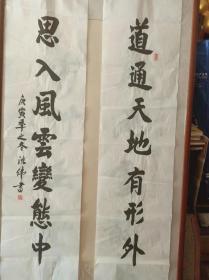 道通天地有形外
思入風雲變態中
庚寅年之冬 書